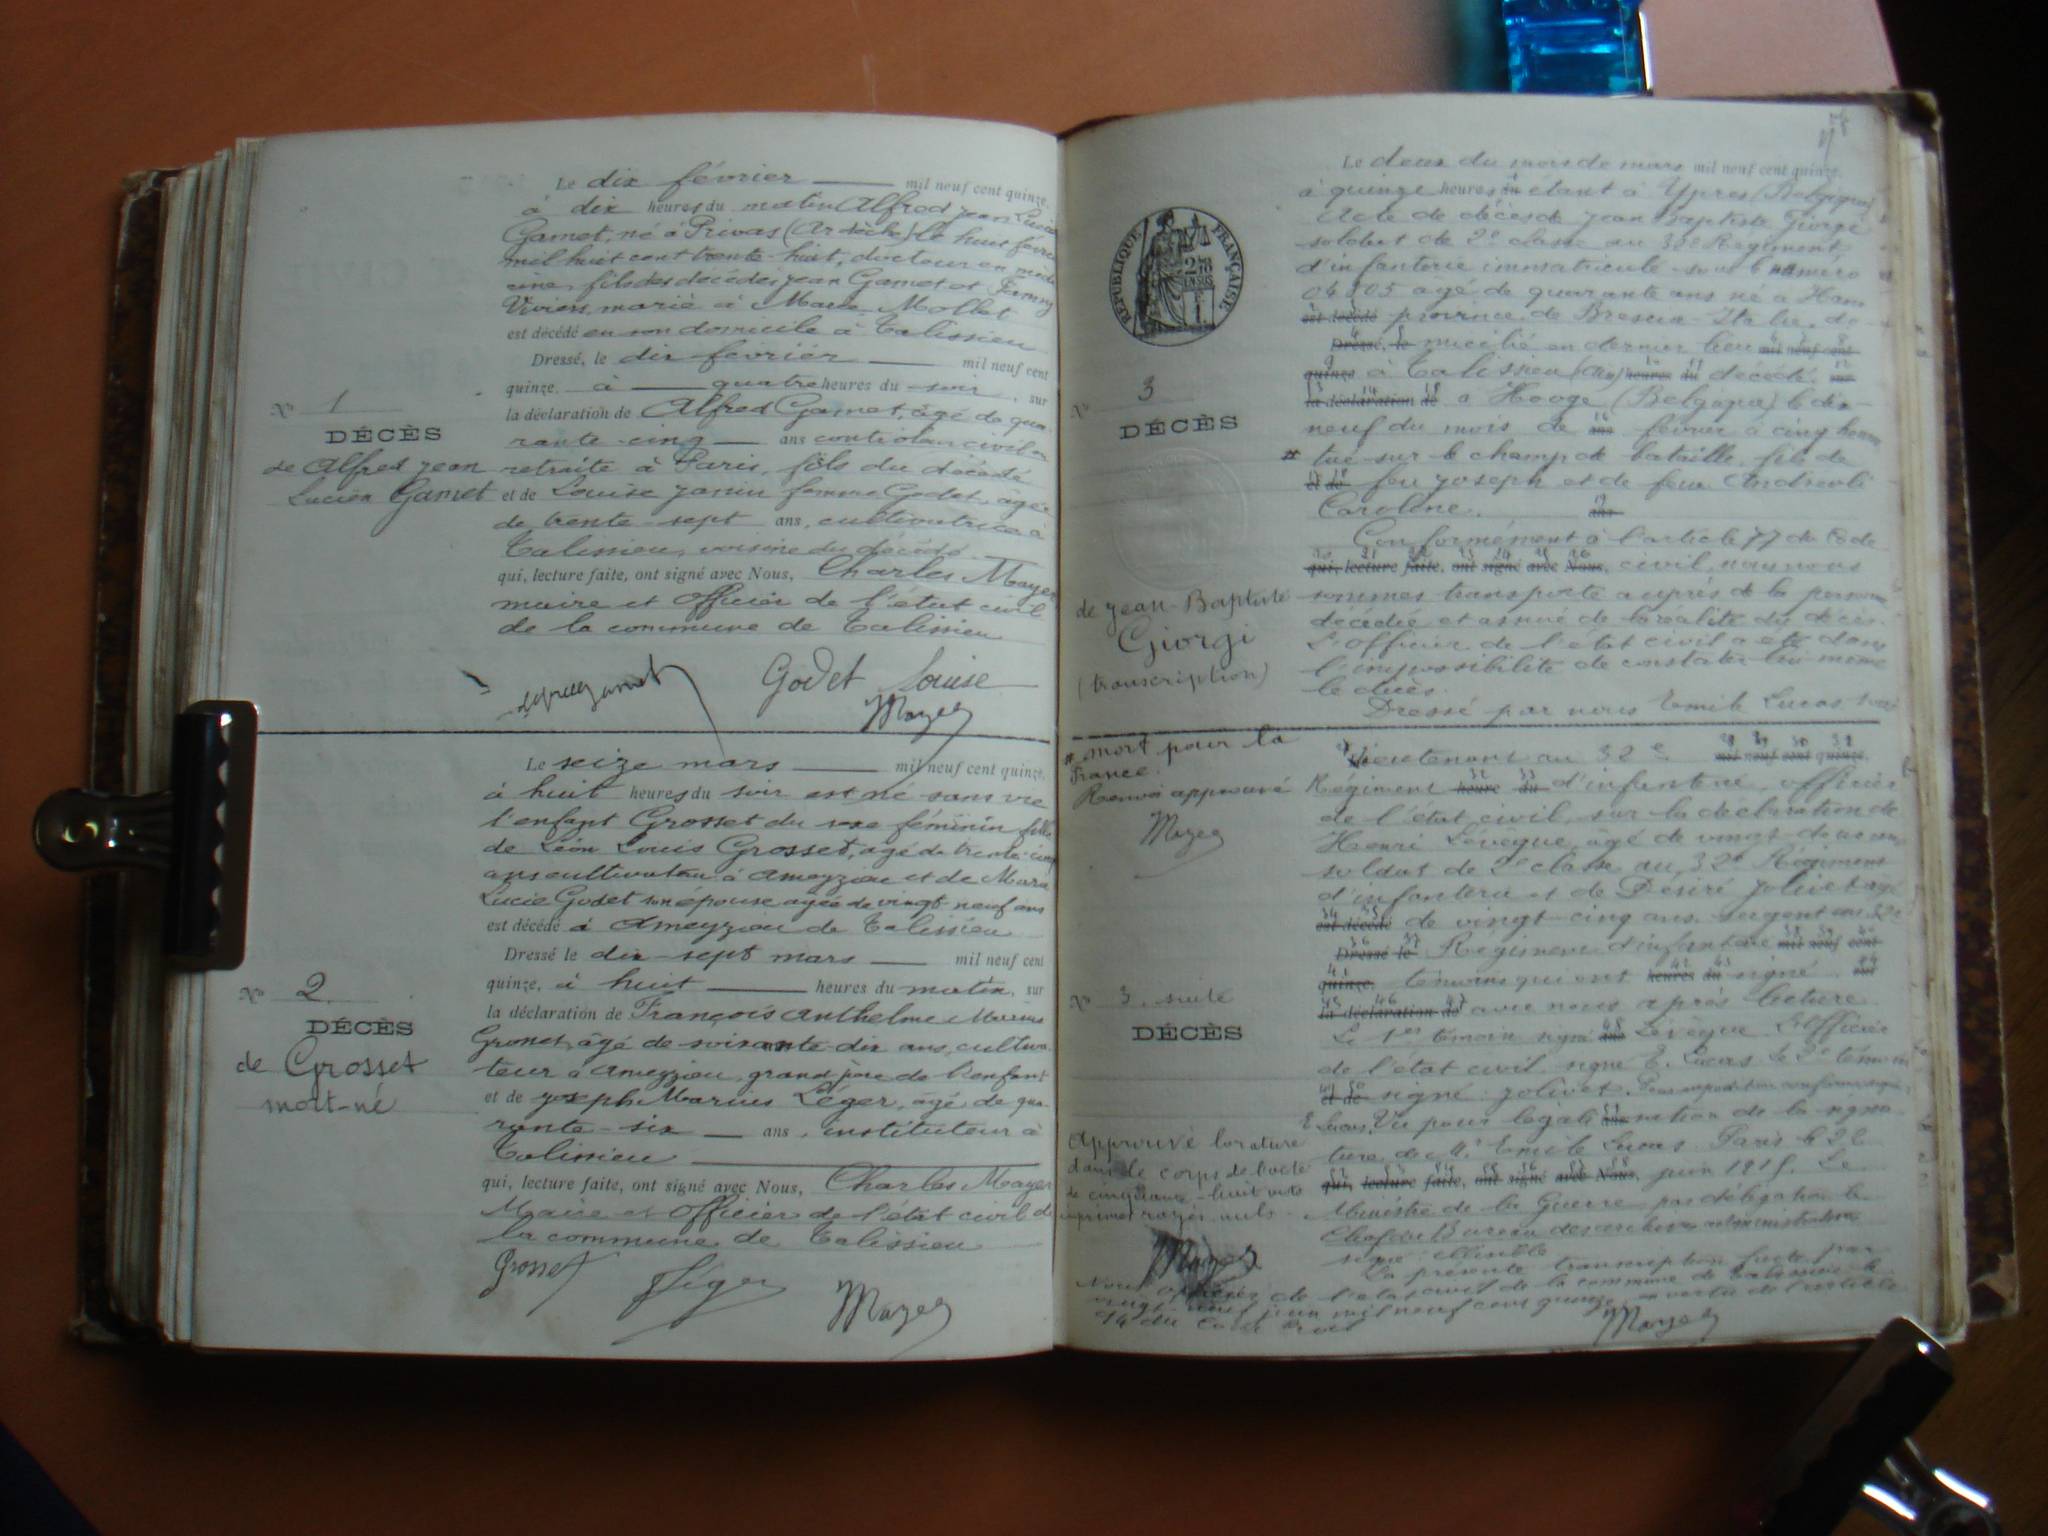 Le dix février mil neuf cent quinze,
à dix heures du matin Alfred Jean Lucien
Gamet, né à Privas (Ardèche) le huit février
mil huit cent trente-huit, docteur en méde-
cine, fils des décédés Jean Gamet et Fanny
Viviers, marié à Marie Mollet
est décédé en son domicile à Talissieu
Dressé, le dix février mil neuf cent
quinze, à quatre heures du soir, sur
la déclaration de Alfred Gamet, âgé de qua-
rante-cinq ans contrôleur civil en
retraite à Paris, fils du décédé
et de Louise Janin femme Godet, âgée
de trente-sept ans, cultivatrice à
Talissieu, voisine du décédé
qui, lecture faite, ont signé avec Nous, Charles Mayer
maire et Officier de l'état civil
de la commune de Talissieu
Godet Louise
Mayer
No 1
DÉCÈS
de Alfred Jean
Lucien Gamet
Le seize mars mil neuf cent quinze,
à huit heures du soir est né sans vie
l'enfant Grosset du sexe féminin fille
de Léon Louis Grosset, âgé de trente-cinq
ans cultivateur à Ameyzieu et de Marie
Lucie Godet son épouse âgée de vingt neuf ans
est décédé à Ameyzieu de Talissieu
Dressé le dix-sept mars mil neuf cent
quinze, à huit heures du matin, sur
la déclaration de François Anthelme Marius
Grosset, âgé de soixante-dix ans, cultiva-
teur à Ameyzieu, grand père de l'enfant
et de Joseph Marius Léger, âgé de qua-
rante-six ans, instituteur à
Talissieu
qui, lecture faite, ont signé avec Nous, Charles Mayer
Maire et Officier de l'état civil de
la commune de Talissieu
Grosset Léger Mayer
No 2
DÉCÈS
de Grosset
mort-né
Le deux du mois de mars mil neuf cent quinze,
à quinze heures étant à Ypres (Belgique)
Acte de décès de Jean Baptiste Giorgi
soldat de 2e classe au 32e Régiment
d'infanterie immatriculé sous le numéro
04805 âgé de quarante ans né à
est décédé province de Brescia Italie, do-
Dressé, le micilié en dernier lieu mil neuf cent
quinze à Talissieu (Ain) heures du décédé sur
la déclaration de à Hooge (Belgique) le dix-
neuf du mois de ans février à cinq heures
# tué sur le champ de bataille, fils de
et de feu Joseph et de feue Andreoli
Caroline. ans
Conformément à l'article 77 du Code
qui, lecture faite, ont signé avec Nous, civil, nous nous
sommes transporté auprès de la personne
décédée et assuré de la réalité du décès.
L'officier de l'état civil a été dans
l'impossibilité de constater lui-même
le décès.
Dressé par nous Emile Lucas sous
RÉPUBLIQUE FRANÇAISE
No 3
DÉCÈS
de Jean-Baptiste
Giorgi
(transcription)
# mort pour la
France.
Renvoi approuvé
Mayer
lieutenant au 32e mil neuf cent quinze,
Régiment heure du d'infanterie, officier
de l'état civil, sur la déclaration de
Henri Lévèque, âgé de vingt-deux ans
soldat de 2e classe au 32e Régiment
d'infanterie et de Désiré Jolivet âgé
est décédé de vingt-cinq ans, sergent au 32e
Dressé le Régiment d'infanterie mil neuf cent
quinze, témoins qui ont heures du signé sur
la déclaration de avec nous après lecture
Le 1er témoin signé ans Lévèque L'Officier
de l'état civil signé E. Lucas le 2e témoin
et de signé: Jolivet. Pour expédition conforme signé,
E Lucas. Vu pour légali ans sation de la signa-
ture de Mr Emile Lucas. Paris le 22
qui, lecture faite, ont signé avec Nous, juin 1915. Le
Ministre de la Guerre, par délégation le
Chef du Bureau des archives administratives
signé: illisible
La présente transcription faite par
Nous officier de l'état civil de la commune de Talissieu le
vingt-neuf juin mil neuf cent quinze, en vertu de l'article
94 du Code civil
Mayer
No 3 suite
DÉCÈS
Approuvé la rature
dans le corps de l'acte
de cinquante-huit mots
imprimés rayés nuls
Mayer